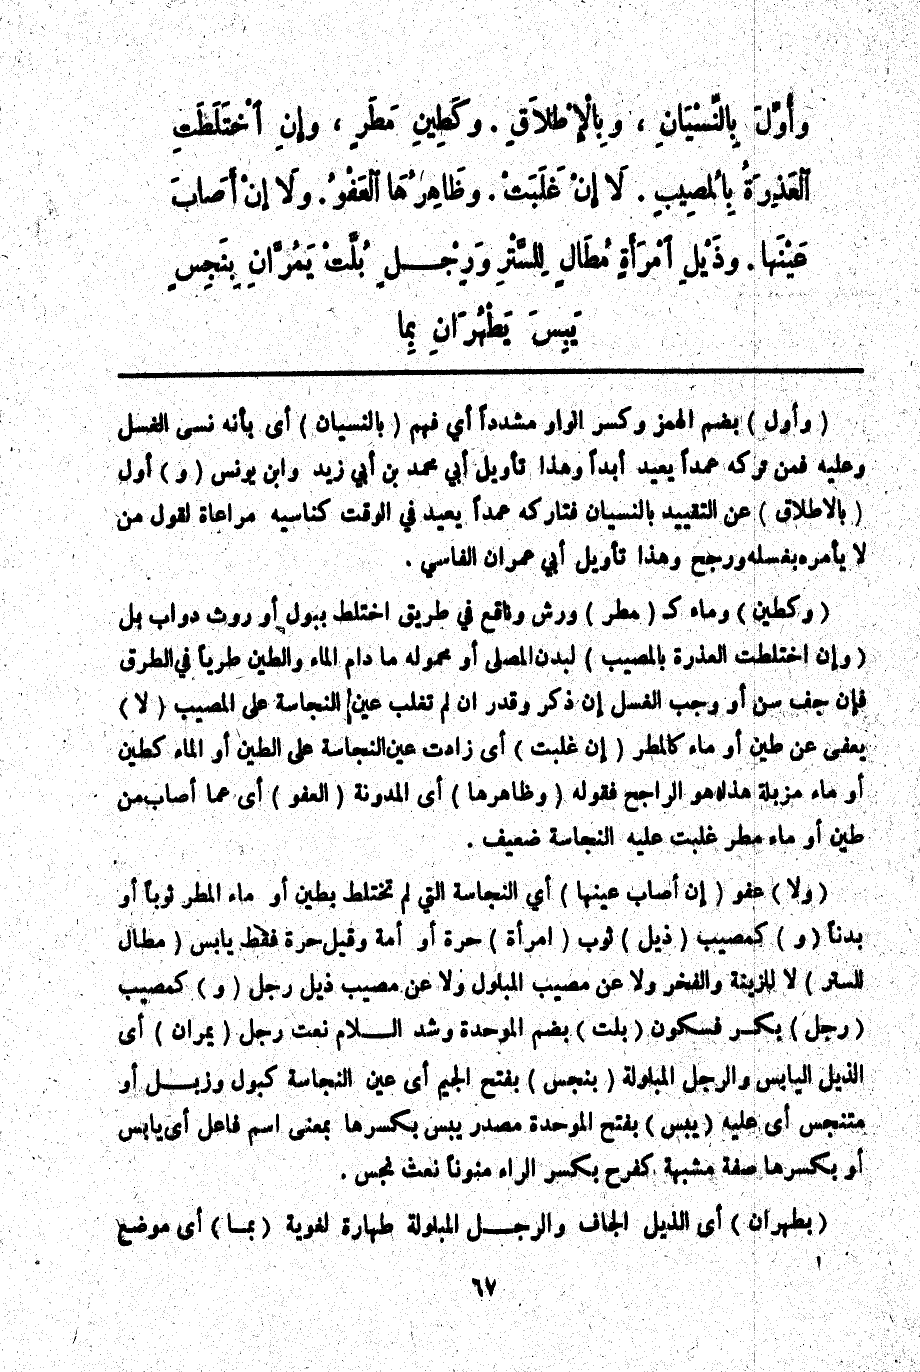 وأُوِّلَ بِالنِّسْيَانِ ، وبِالْإِطْلَاقِ . وكَطِينِ مَطَرٍ ، وإنِ ٱخْتَلَطَتِ
ٱلْعَذِرَةُ بِالْمُصِيبِ . لَا إنْ غَلَبَتْ . وظَاهِرُهَا ٱلْعَفْوُ . ولَا إنْ أَصَابَ
عَيْنَهَا . وذَيْلِ ٱمْرَأَةٍ مُطَالٍ لِلسَّتْرِ وَرِجْلٍ بُلَّتْ يَمُرَّانِ بِنَجِسٍ
يَبِسَ يَطْهُرَانِ بِمَا
( وأول ) بضم الهمز وكسر الواو مشدداً أي فهم ( بالنسيان ) أى بأنه نسى الغسل
وعليه فمن تركه عمداً يعيد أبداً وهذا تأويل أبي محمد بن أبي زيد وابن يونس ( و ) أول
( بالاطلاق ) عن التقييد بالنسيان فتاركه عمداً يعيد في الوقت كناسيه مراعاة لقول من
لا يأمره بغسله ورجح وهذا تأويل أبي عمران الفاسي .
( وكطين ) وماء كـ ( مطر ) ورش وناقع في طريق اختلط ببول أو روث دواب بل
( وإن اختلطت العذرة بالمصيب ) لبدن المصلى أو محموله ما دام الماء والطين طرياً في الطرق
فإن جف سن أو وجب الغسل إن ذكر وقدر ان لم تغلب عين النجاسة على المصيب ( لا )
يعفى عن طين أو ماء كالمطر ( إن غلبت ) أى زادت عين النجاسة على الطين أو الماء كطين
أو ماء مزبلة هذا هو الراجح فقوله ( وظاهرها ) أى المدونة ( العفو ) أى عما أصاب من
طين أو ماء مطر غلبت عليه النجاسة ضعيف .
( ولا ) عفو ( إن أصاب عينها ) أي النجاسة التي لم تختلط بطين أو ماء المطر ثوباً أو
بدناً ( و ) كمصيب ( ذيل ) ثوب ( امرأة ) حرة أو أمة وقيل حرة فقط يابس ( مطال
للستر ) لا للزينة والفخر ولا عن مصيب المبلول ولا عن مصيب ذيل رجل ( و ) كمصيب
( رجل ) بكسر فسكون ( بلت ) بضم الموحدة وشد اللام نعت رجل ( يمران ) أى
الذيل اليابس والرجل المبلولة ( بنجس ) بفتح الجيم أى عين النجاسة كبول وزبل أو
متنجس أى عليه ( يبس ) بفتح الموحدة مصدر يبس بكسرها بمعنى اسم فاعل أى يابس
أو بكسرها صفة مشبهة كفرح بكسر الراء منوناً نعت نجس .
( يطهران ) أى الذيل الجاف والرجل المبلولة طهارة لغوية ( بما ) أى موضع
٦٧